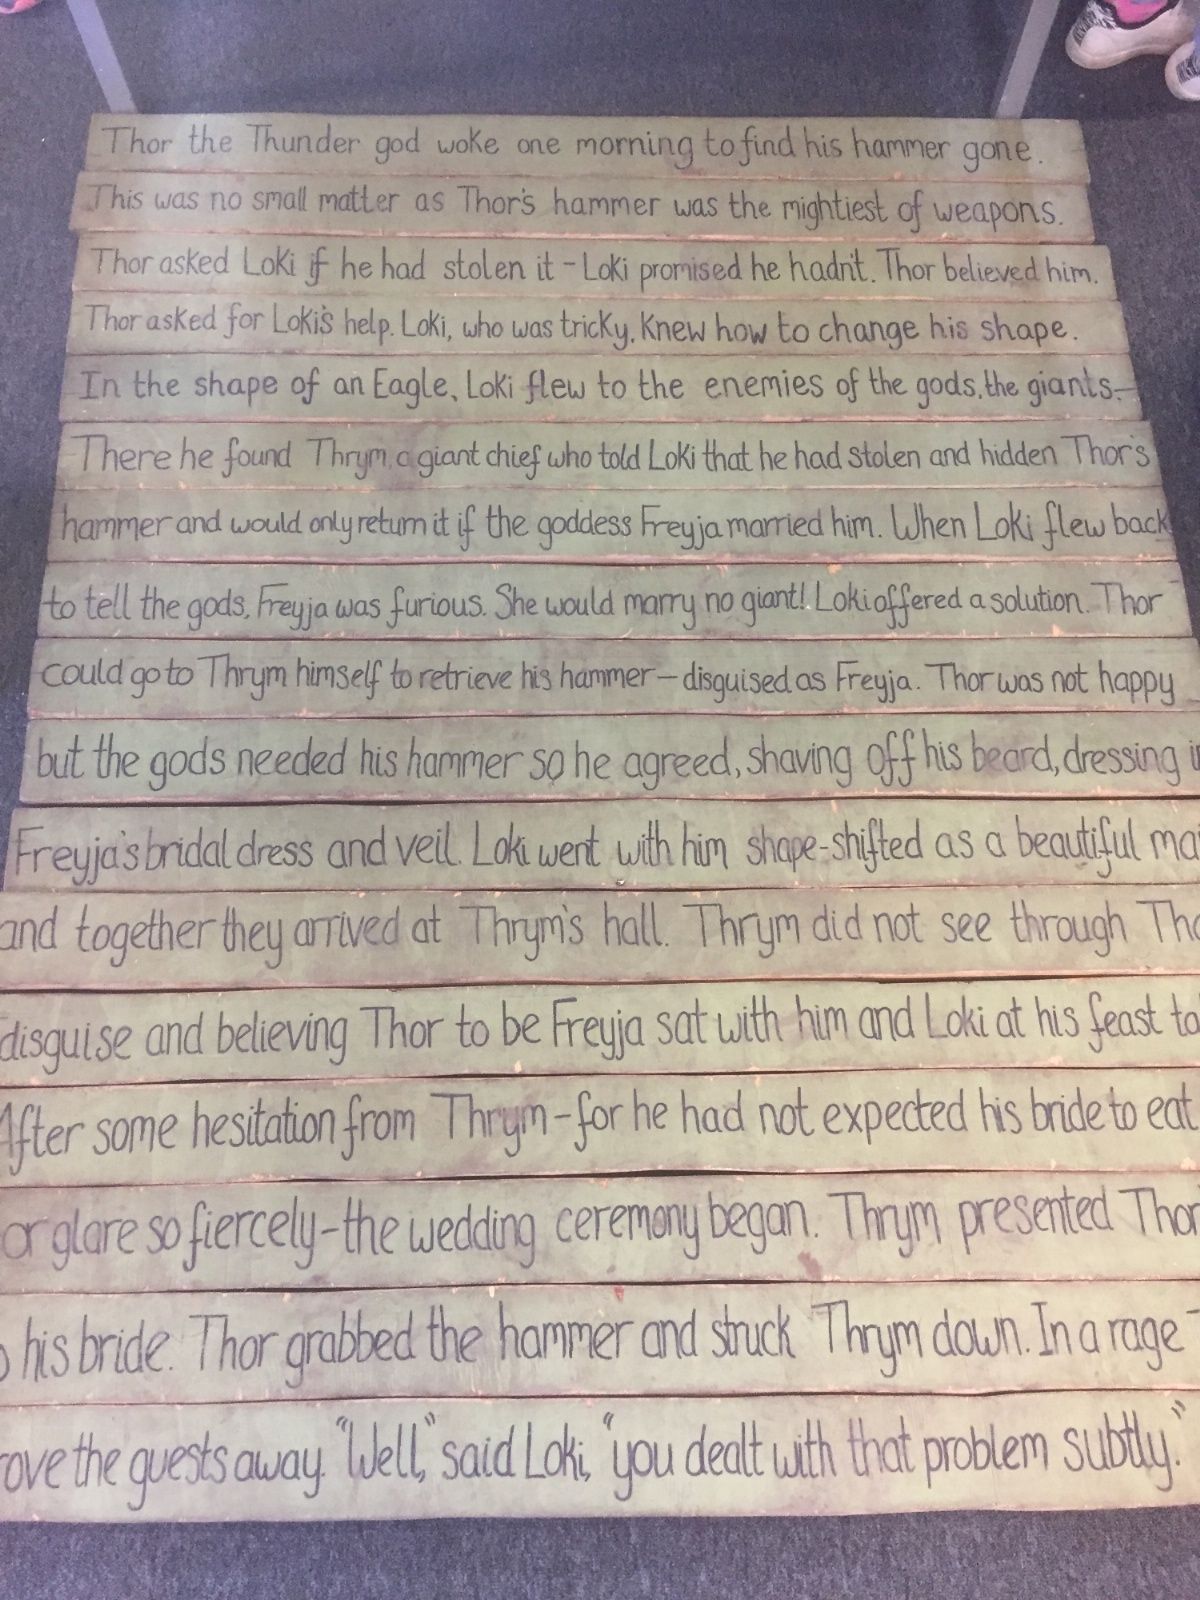 Thor the Thunder god woke one morning to find his hammer gone.
This was no small matter as Thor's hammer was the mightiest of weapons.
Thor asked Loki if he had stolen it - Loki promised he hadn't. Thor believed him.
Thor asked for Loki's help. Loki, who was tricky, knew how to change his shape.
In the shape of an Eagle, Loki flew to the enemies of the gods, the giants-
There he found Thrym, a giant chief who told Loki that he had stolen and hidden Thor's
hammer and would only return it if the goddess Freyja married him. When Loki flew back
to tell the gods, Freyja was furious. She would marry no giant! Loki offered a solution. Thor
could go to Thrym himself to retrieve his hammer - disguised as Freyja. Thor was not happy
but the gods needed his hammer so he agreed, shaving off his beard, dressing
Freyja's bridal dress and veil. Loki went with him shape-shifted as a beautiful
and together they arrived at Thrym's hall. Thrym did not see through
disguise and believing Thor to be Freyja sat with him and Loki at his feast
After some hesitation from Thrym - for he had not expected his bride to eat
or glare so fiercely - the wedding ceremony began. Thrym presented
his bride. Thor grabbed the hammer and struck Thrym down. In a rage
the guests away. "Well," said Loki, "you dealt with that problem subtly."